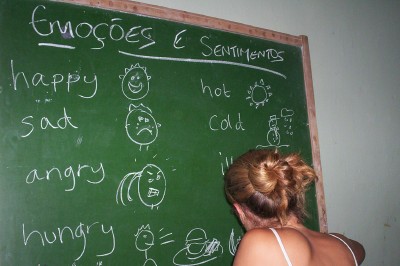 EMOÇÕES E SENTIMENTOS
happy
hot
sad
cold
angry
hungry